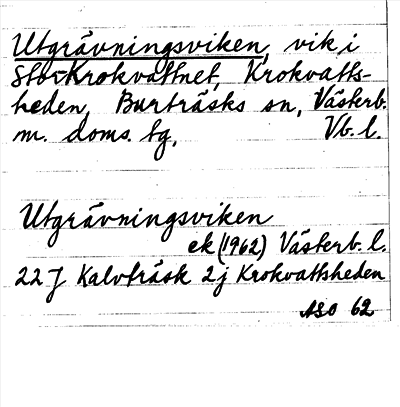 Utgrävningsviken, vik i
Stor-Krokvattnet, Krokvatts-
heden, Burträsks sn, Västerb.
m. doms. tg, Vb. l.
Utgrävningsviken
ek (1962) Västerb. l.
22 J Kalvträsk 2j Krokvattsheden
ASO 62